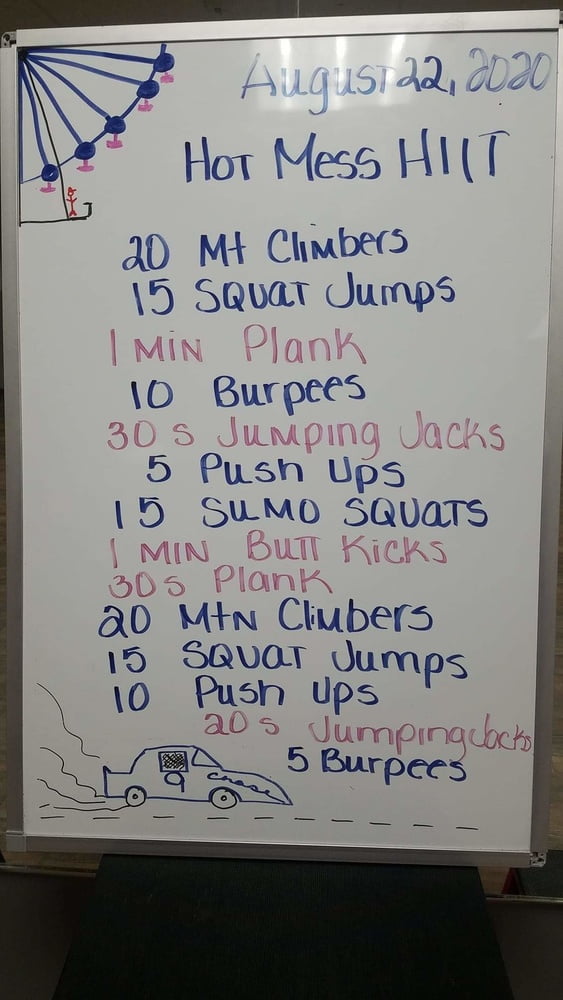 August 22, 2020
Hot Mess HIIT
20 Mt Climbers
15 Squat Jumps
1 Min Plank
10 Burpees
30 s Jumping Jacks
5 Push Ups
15 Sumo Squats
1 Min Butt Kicks
30s Plank
20 Mtn Climbers
15 Squat Jumps
10 Push Ups
20 s Jumping Jacks
5 Burpees
9